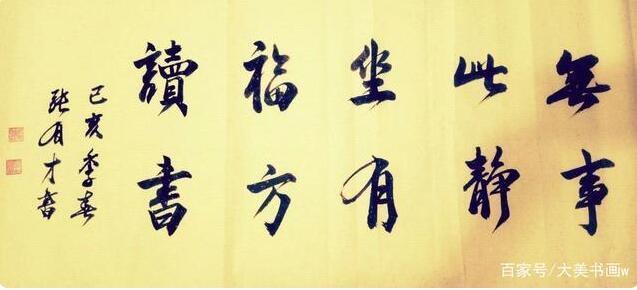 無事
此静
坐有
福方
讀書
己亥季春
張有才書
百家号/大美书画w